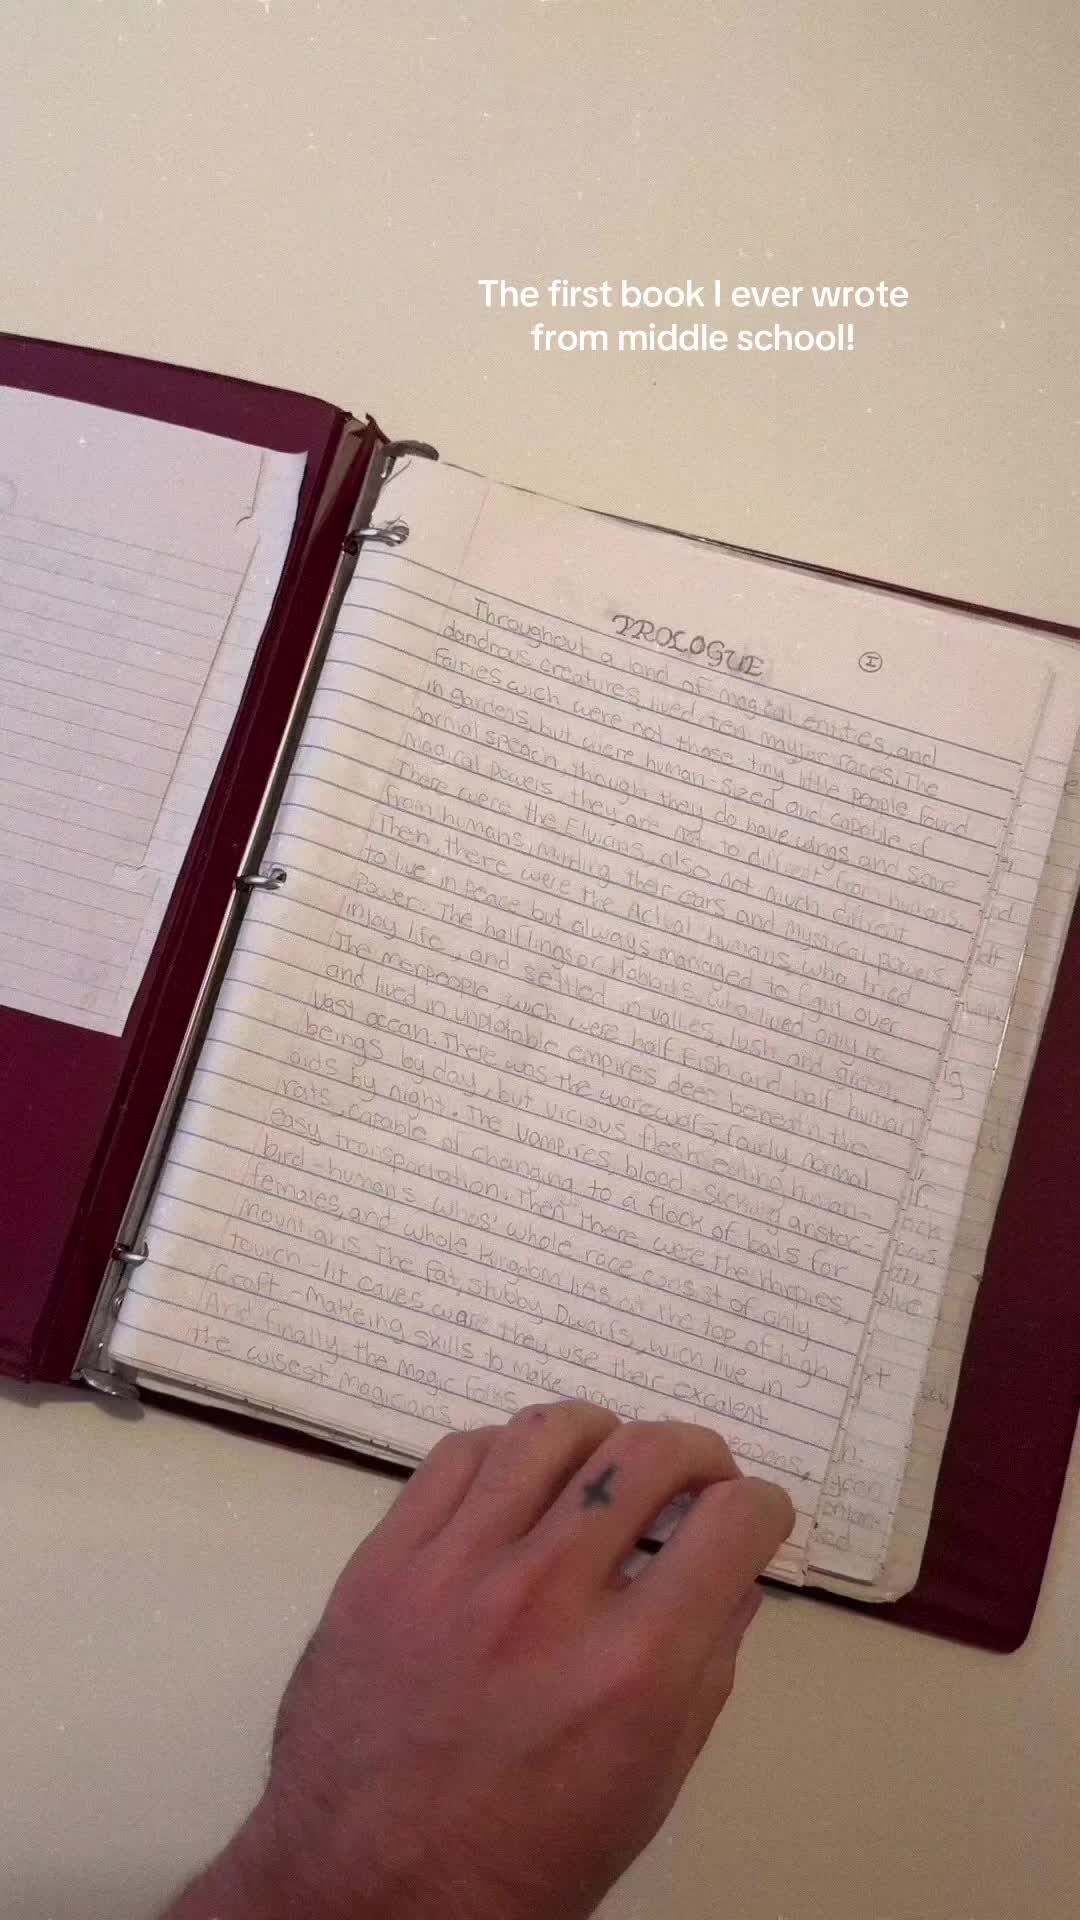 The first book I ever wrote
from middle school!
PROLOGUE
I
Throughout a land of magical entities, and
dandrous creatures, lived ten mayjor races. The
fairies wich were not those tiny little people found
in gardens, but were human-sized and capable of
normal speach, though they do have wings and some
magical powers, they are not to diffrent from humans.
There were the Elvians, also not much diffrent
from humans, minding their ears and mystical powers.
Then there were the Actual humans, who tried
to live in peace but always managed to fight over
Power. The halflings or Habbits, who lived only to
injoy life, and settled in valles, lush and green.
The merpeople, wich were half fish and half human
and lived in empires deep beneath the
vast ocean. There was the warewolfs, fairly normal
beings by day, but vicious flesh eating human-
oids by night. The vampires, blood-sucking aristoc-
rats, capable of changing to a flock of bats for
easy transportation. Then there were the Harpies,
bird-humans whos' whole race consist of only
females, and whole kingdom lies at the top of high
mountians. The fat, stubby Dwarfs, wich live in
tourch-lit caves ware they use their excalent
craft-makeing skills to make armor and weapens,
And finally the magic folks
the wisest magicans